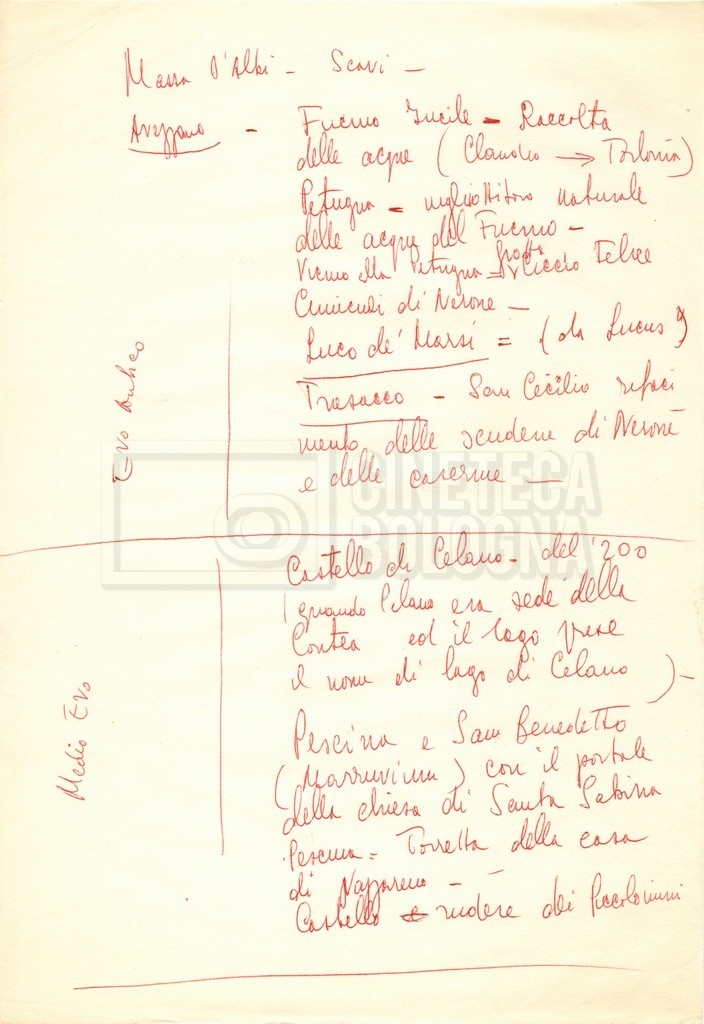 Massa d'Albi - Scavi -
Avezzano - Fucino Incile - Raccolta
delle acque (Claudio → Torlonia)
Petogna - inghiottitoio naturale
delle acque del Fucino -
Vicino alla Petogna - grotta di Ciccio Felice
Cunicoli di Nerone -
Luco de' Marsi = (da Lucus?)
Trasacco - San Cecilio rifaci
mento delle scuderie di Nerone
e delle caserme —
Evo Antico
CINETECA
BOLOGNA
Castello di Celano - del '200
(quando Celano era sede della
Contea ed il lago prese
il nome di lago di Celano) -
Pescina e San Benedetto
(Marruvium) con il portale
della chiesa di Santa Sabina
Pescina = Torretta della casa
di Mazzarino -
Castello e rudere dei Piccolomini
Medio Evo